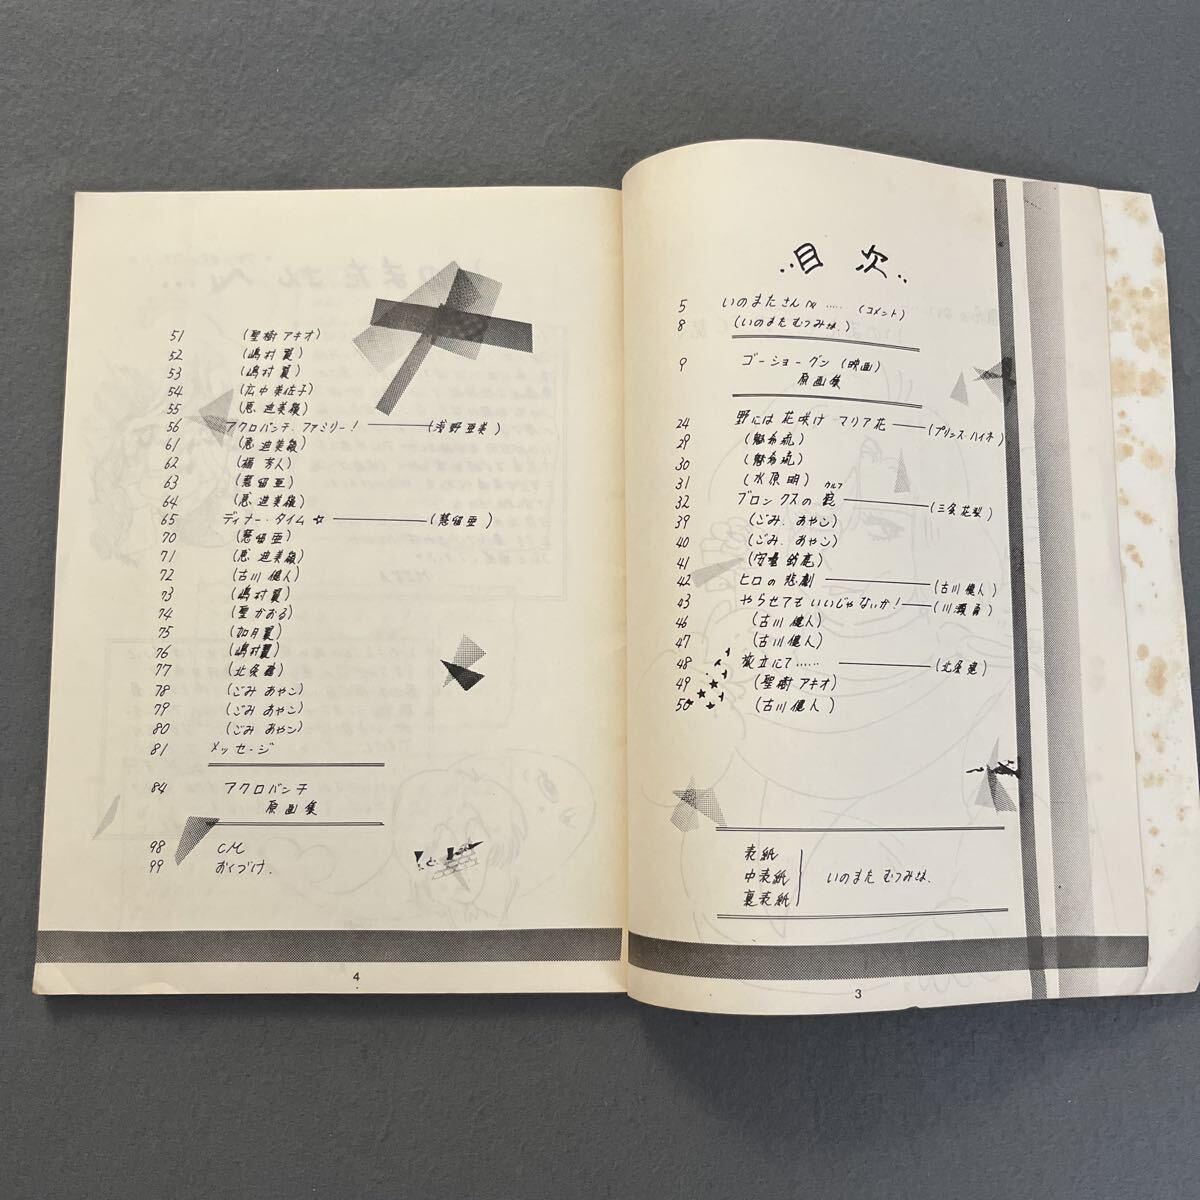 目次
5 いのまたさんへ…… (コメント)
8 (いのまたむつみは.)
9 ゴーショーグン (映画)
原画集
24 野には花咲け マリア花 (プリンス・ハイネ)
29
30
31 (水原明)
32 ブロンクスの (三条花梨)
ウルフ
39 (ごみ. あやこ)
40 (ごみ. あやこ)
41
42 ヒロの悲劇 (古川健人)
43 やらせてもいいじゃないか! (川瀬勇)
46 (古川健人)
47 (古川健人)
48 旅立にて…… (北条
49 (聖樹アキオ)
50 (古川健人)
表紙
中表紙
裏表紙
いのまたむつみは.
3
51 (聖樹アキオ)
52 (嶋村麗)
53 (嶋村麗)
54 (広中美佐子)
55
56 アクロバンチ・ファミリー! (浅野亜美)
61
62 (橘芳人)
63 (慧留亜)
64
65 ディナー・タイム☆ (慧留亜)
70 (慧留亜)
71
72 (古川健人)
73 (嶋村麗)
74 (聖かおる)
75 (如月麗)
76 (嶋村麗)
77 (北条
78 (ごみあやこ)
79 (ごみあやこ)
80 (ごみあやこ)
81 メッセージ
84 アクロバンチ
原画集
98 CM
99 おくづけ.
4